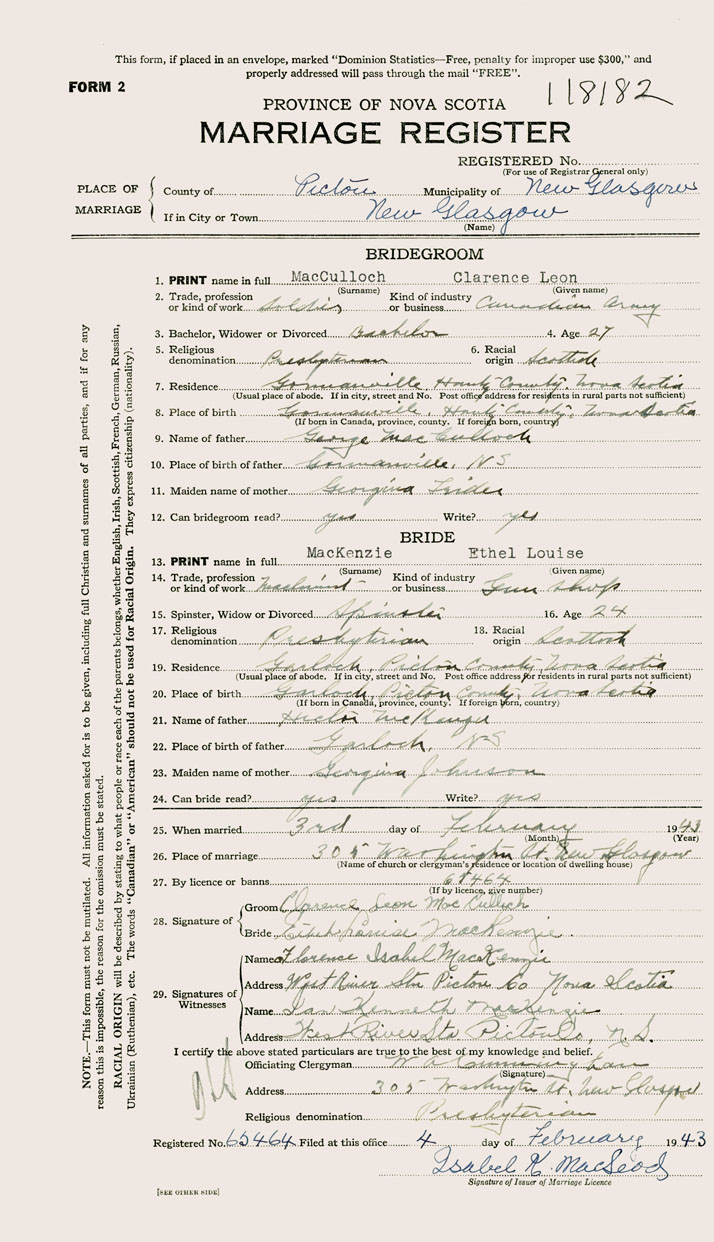 This form, if placed in an envelope, marked "Dominion Statistics—Free, penalty for improper use $300," and
properly addressed will pass through the mail "FREE".
FORM 2
118182
PROVINCE OF NOVA SCOTIA
MARRIAGE REGISTER
REGISTERED No.
(For use of Registrar General only)
PLACE OF MARRIAGE
County of Pictou Municipality of New Glasgow
If in City or Town New Glasgow
(Name)
BRIDEGROOM
1. PRINT name in full MacCulloch Clarence Leon
(Surname) (Given name)
2. Trade, profession or kind of work Soldier Kind of industry or business Canadian Army
3. Bachelor, Widower or Divorced Bachelor 4. Age 27
5. Religious denomination Presbyterian 6. Racial origin Scottish
7. Residence Gormanville, Hants County, Nova Scotia
(Usual place of abode. If in city, street and No. Post office address for residents in rural parts not sufficient)
8. Place of birth Gormanville, Hants County, Nova Scotia
(If born in Canada, province, county. If foreign born, country)
9. Name of father George MacCulloch
10. Place of birth of father Gormanville, N S
11. Maiden name of mother Georgina
12. Can bridegroom read? yes Write? yes
BRIDE
13. PRINT name in full MacKenzie Ethel Louise
(Surname) (Given name)
14. Trade, profession or kind of work Machinist Kind of industry or business Gun shop
15. Spinster, Widow or Divorced Spinster 16. Age 24
17. Religious denomination Presbyterian 18. Racial origin Scottish
19. Residence Garloch, Pictou County, Nova Scotia
(Usual place of abode. If in city, street and No. Post office address for residents in rural parts not sufficient)
20. Place of birth Garloch, Pictou County, Nova Scotia
(If born in Canada, province, county. If foreign born, country)
21. Name of father Hector McKenzie
22. Place of birth of father Garloch, N S
23. Maiden name of mother Georgina Johnson
24. Can bride read? yes Write? yes
25. When married 3rd day of February 1943
(Month) (Year)
26. Place of marriage 305 Washington St. New Glasgow
(Name of church or clergyman's residence or location of dwelling house)
27. By licence or banns 65464
(If by licence, give number)
28. Signature of
Groom Clarence Leon MacCulloch
Bride Ethel Louise MacKenzie.
29. Signatures of Witnesses
Name Florence Isabel MacKenzie
Address West River Stn Pictou Co Nova Scotia
Name Ian Kenneth MacKenzie
Address West River Sta Pictou Co, N. S.
I certify the above stated particulars are true to the best of my knowledge and belief.
Officiating Clergyman
(Signature)
Address 305 Washington St. New Glasgow
Religious denomination Presbyterian
Registered No. 65464 Filed at this office 4 day of February 1943
Isabel K. MacLeod
Signature of Issuer of Marriage Licence
[SEE OTHER SIDE]
NOTE.—This form must not be mutilated. All information asked for is to be given, including full Christian and surnames of all parties, and if for any
reason this is impossible, the reason for the omission must be stated.
RACIAL ORIGIN will be described by stating to what people or race each of the parents belongs, whether English, Irish, Scottish, French, German, Russian,
Ukrainian (Ruthenian), etc. The words "Canadian" or "American" should not be used for Racial Origin. They express citizenship (nationality).